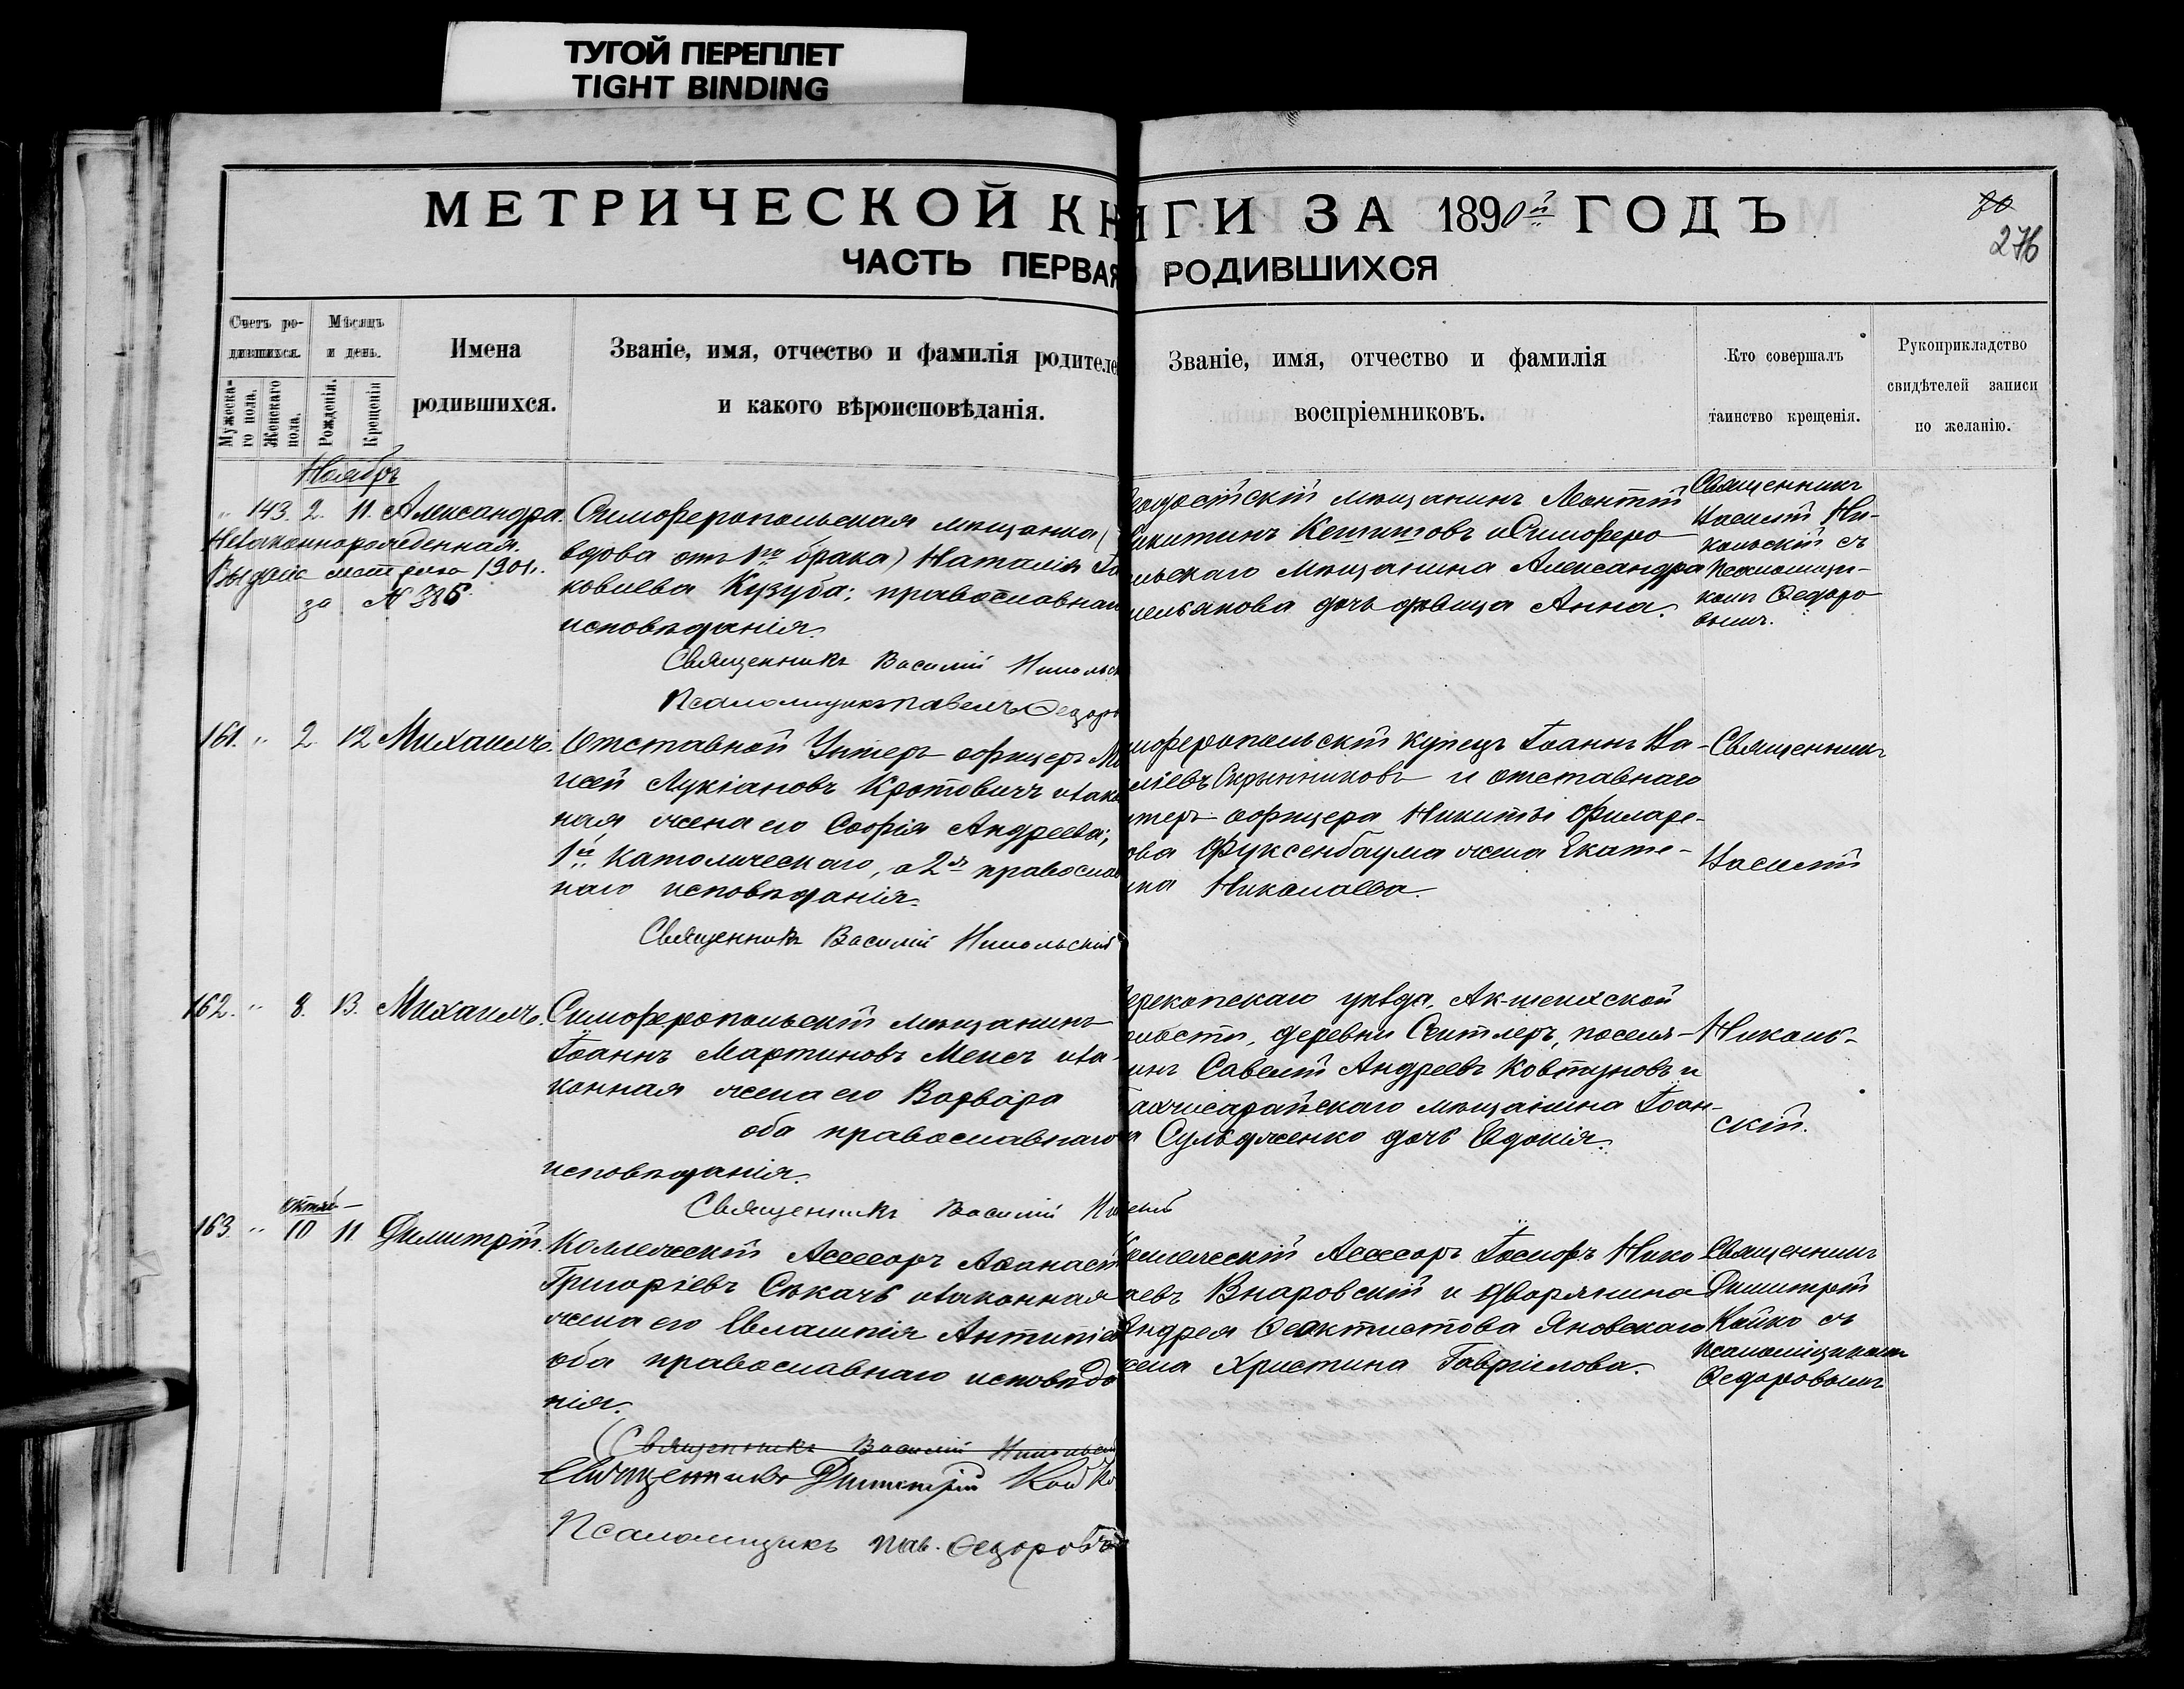 ТУГОЙ ПЕРЕПЛЕТ
TIGHT BINDING
МЕТРИЧЕСКОЙ КНИГИ ЗА 1890й ГОДЪ
80
276
ЧАСТЬ ПЕРВАЯ РОДИВШИХСЯ
Счетъ ро-
дившихся.
Мужеска-
го пола.
Женскаго
пола.
Мѣсяцъ
и день.
Рожденія.
Крещенія
Имена
родившихся.
Званіе, имя, отчество и фамилія родителе
и какого вѣроисповѣданія.
Званіе, имя, отчество и фамилія
воспріемниковъ.
Кто совершалъ
таинство крещенія.
Рукоприкладство
свидѣтелей записи
по желанію.
Ноябрь
" 143. 2. 11. Александра.
Незаконнорожденная.
1901.
за №
Симферопольская мѣщанка (
вдова отъ 1го брака) Наталія
ковлева Кузуба; православнаго
исповѣданія.
Священникъ Василій Никольск
Псаломщикъ Павелъ Ѳедоро
мѣщанинъ Леонтій
икитинъ и Симферо
льскаго мѣщанина Александра
дочь дѣвица Анна.
Священникъ
Василій Ни-
кольскій съ
псаломщи-
комъ Ѳедоро
вымъ.
161. " 2. 12 Михаилъ.
Отставной Унтеръ офицеръ
сей Лукіановъ Кротовичъ и зако
ная жена его Софія Андреева;
1й Католическаго, а 2я православ
наго исповѣданія.
Священникъ Василій Никольскій
мферопольскій купецъ Іоаннъ Ва-
сліевъ Скрынниковъ и отставнаго
нтеръ-офицера Никиты Филаре-
ова Фуксенбаума жена Екате-
ина Николаева.
Священникъ
Василій
162. " 8. 13. Михаилъ.
Симферопольскій мѣщанинъ
Іоаннъ Мартиновъ и за-
конная жена его Варвара
оба православнаго
исповѣданія.
Священникъ Василій Ни скій
ерекопскаго уѣзда, Ак-шеихской
лости, деревни Сеитлеръ, поселя-
инъ Савелій Андреевъ Ковтуновъ и
ахчисарайскаго мѣщанина Іоан-
а дочь Евдокія.
Николь-
скій.
163. " 10 11. Димитрій.
Коллежскій Ассесоръ Аѳанасій
Григоріевъ Сѣкачъ и законная
жена его Евлампія Антипіев
оба православнаго исповѣда
нія.
Священникъ Василій Никольскій
Священникъ Димитрій Койко
Псаломщикъ Пав. Ѳедоровъ
Коллежскій Ассесоръ Іосифъ Нико
аевъ и дворянина
Андрея Ѳеоктистова Яновскаго
жена Христина Гавріилова.
Священникъ
Димитрій
Койко съ
псаломщикомъ
Ѳедоровымъ